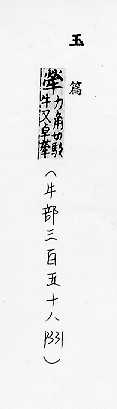 玉篇
犖力角切駁牛又卓犖(牛部三百五十八P331)